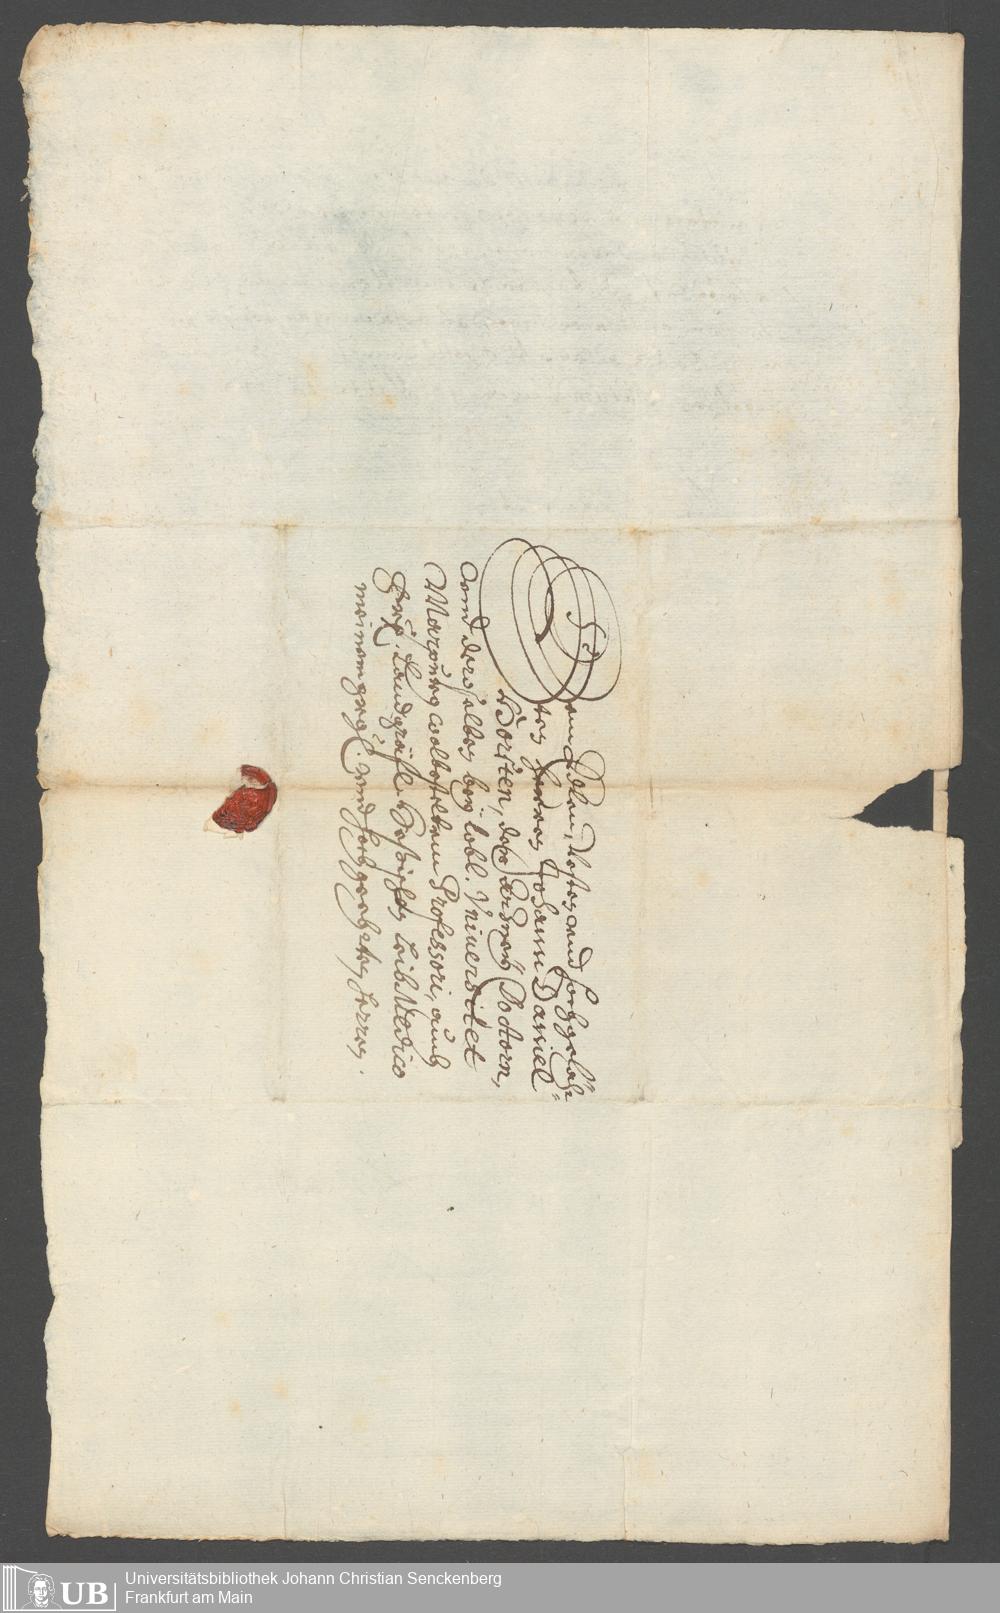 Dem Edlen, Vesten vnd Hochgelahr-
ten Herren Johann Daniel
Horsten, der Artzney Doctorn,
vnd derselben bey löbl. Vniversitet
Marpurg wolbesteltem Professori, auch
Fürstl. Landgräfl. Heßischen Leib Medico
meinem großg. vnd hochgeehrten Herren.
UB
Universitätsbibliothek Johann Christian Senckenberg
Frankfurt am Main